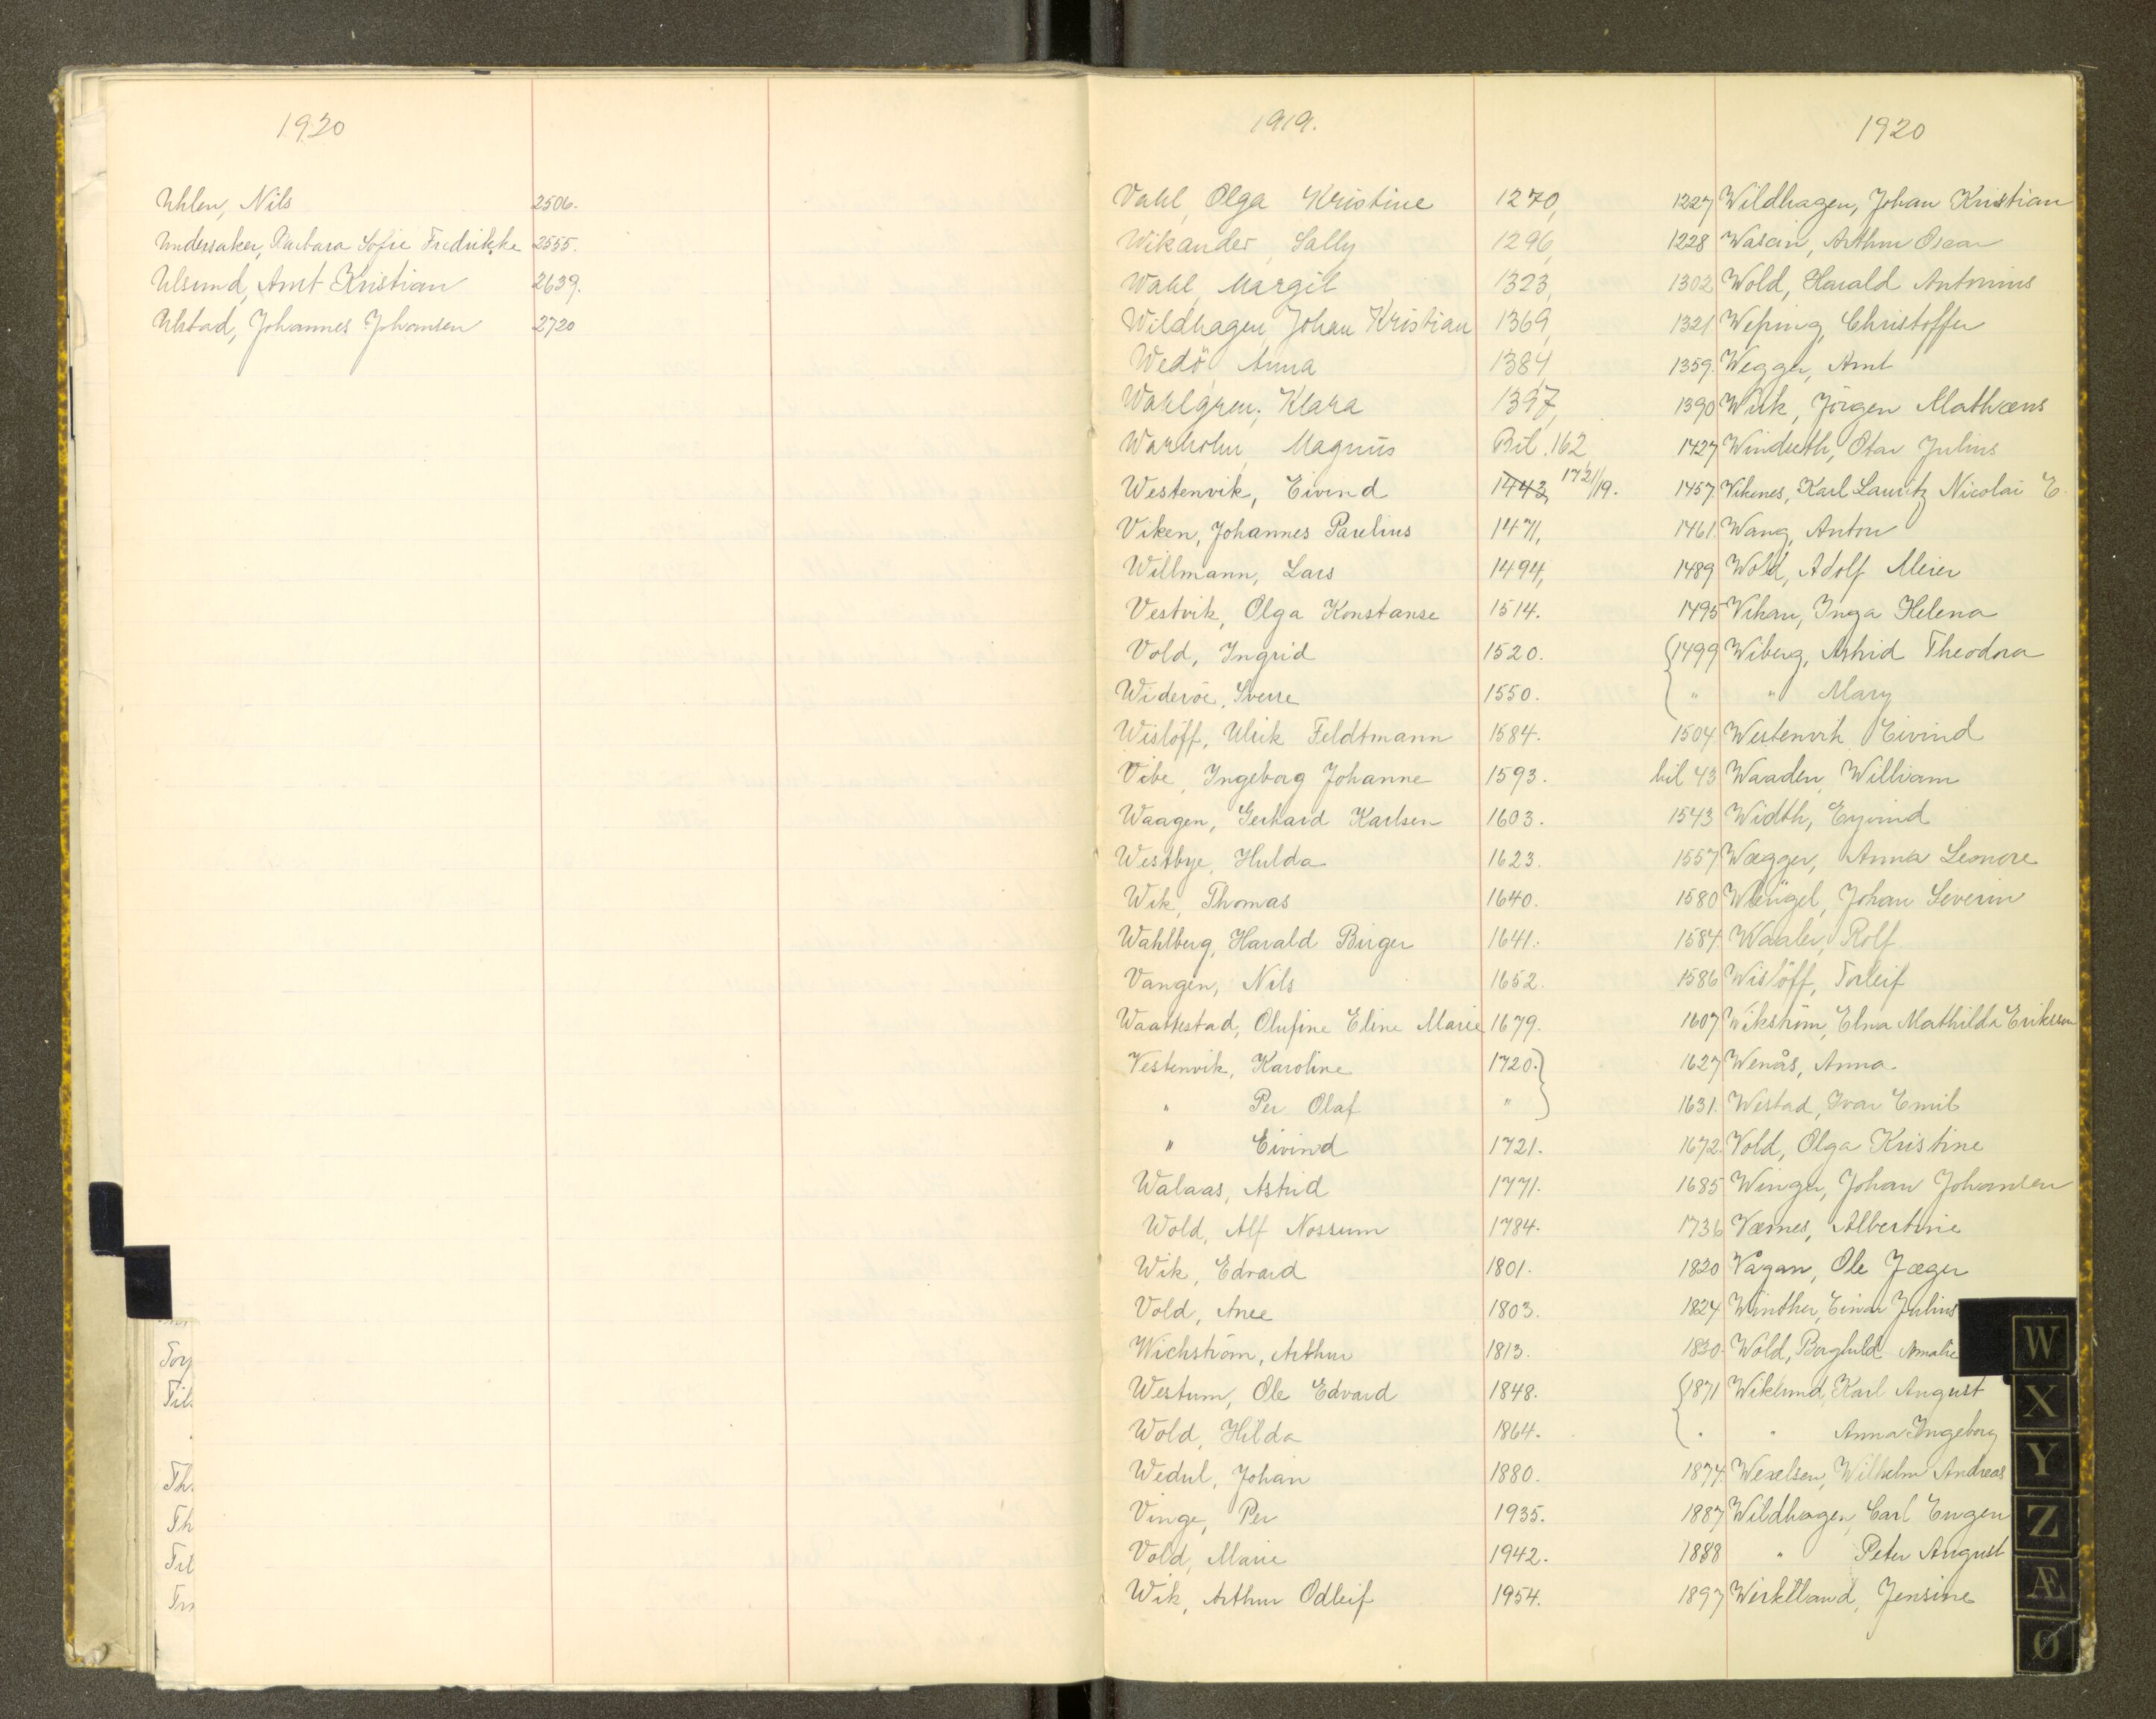 1920
Uhlen, Nils 2506.
Undersaker, Barbara Sofie Fredrikke 2555.
Ulsund, Arnt Kristian 2639.
Ulstad, Johannes Johansen 2720
Tory
Til
Th.
Th
Til
1919.
Vahl, Olga Kristine 1270,
Wikander, Sally 1296,
Wahl, Margit 1323,
Wildhagen, Johan Kristian 1369,
Wedö, Anna 1384,
Wahlgren, Klara 1397,
Warholm, Magnus Bil. 162
Westenvik, Eivind 1443, 1721/19.
Viken, Johannes Paulius 1471,
Willmann, Lars 1494,
Vestvik, Olga Konstanse 1514.
Vold, Ingrid 1520.
Wideröe, Sverre 1550.
Wislöff, Ulrik Feldtmann 1584.
Vibe, Ingeborg Johanne 1593.
Waagen, Gerhard Karlsen 1603.
Westbye, Hulda 1623.
Wik, Thomas 1640.
Wahlberg, Harald Birger 1641.
Vangen, Nils 1652.
Olufine Eline Marie 1679.
Vestenvik, Karoline 1720. }
" Per Olaf " }
" Eivind 1721.
Walaas, Astrid 1771.
Wold, Alf Nossum 1784.
Wik, Edvard 1801.
Vold, Anee 1803.
Wichström, Arthur 1813.
Westum, Ole Edvard 1848.
Wold, Hilda 1864.
Wedul, Johan 1880.
Vinge, Per 1935.
Vold, Marie 1942.
Wik, Arthur Odleif 1954.
1920
1227 Wildhagen, Johan Kristian
1228 Arthur Oscar
1302 Wold, Harald Antonius
1321 Christoffer
1359. Wegger, Arnt
1390 Wiik, Jörgen Mathæus
1427 Otar Julius
1457. Vikenes, Karl Lauritz Nicolai E.
1461. Wang, Anton
1489 Wold, Adolf Meier
1495 Vikan, Inga Helena
{ 1499 Wiberg, Astrid Theodora
{ " " Mary
1504 Westenvik Eivind
bil 43 Waaden, William
1543 Width, Eyvind
1557 Wægger, Anna Leonore
1580 Johan Severin
1584 Waaler, Rolf
1586 Wislöff, Torleif
1607 Wikström, Elna Mathilda Eriksson
1627 Wenås, Anna
1631. Westad, Ivar Emil
1672. Vold, Olga Kristine
1685 Winger, Johan Johansen
1736 Værnes, Albertine
1820 Vågan, Ole Jæger
1824 Winther, Einar Julius
1830. Wold, Borghild Amalie
{ 1871 Wiklund, Karl August
{ . " Anna Ingeborg
1874. Wexelsen, Wilhelm Andreas
1887 Wildhagen, Carl Eugen
1888 " Peter August
1897 Jensine
W
X
Y
Z
Æ
Ø